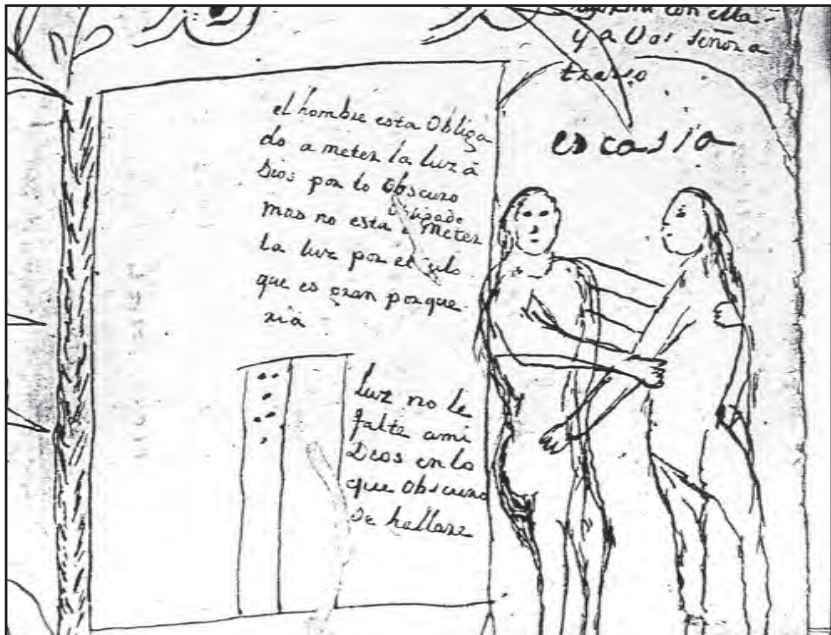 con ella
y a Vos señora
traigo
es casia
el hombre esta Obliga
do a meter la luz â
Dios por lo Obscuro
mas no esta a meter
la luz por el culo
que es gran porque
ria
luz no le
falte ami
Dios en lo
que Obscuro
se hallare